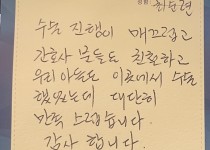 최순련
수술 진행이 매끄럽고
간호사 분들도 친절하고
우리 아들도 이곳에서 수술
했었는데 대단히
만족 스럽습니다.
감사 합니다.